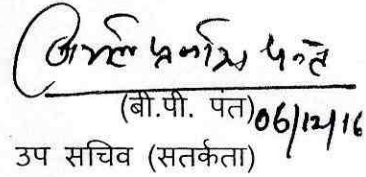 (बी.पी. पंत) 06/12/16
उप सचिव (सतर्कता)